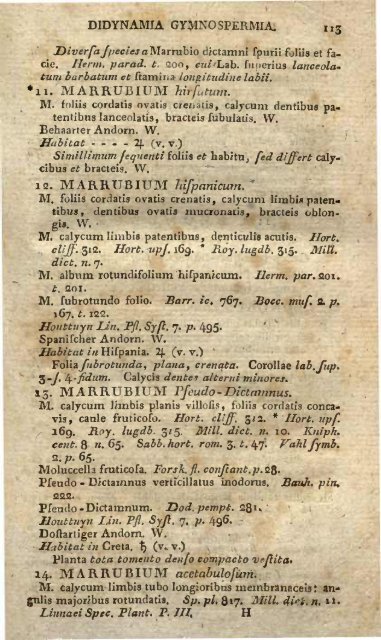 DIDYNAMIA GYMNOSPERMIA. 113
Diversa species a Marrubio dictamni spurii foliis et fa-
cie. Herm. parad. t. 200, cui Lab. superius lanceola-
tum barbatum et stamina longitudine labii.
*11. MARRUBIUM hirsutum.
M. foliis cordatis ovatis crenatis, calycum dentibus pa-
tentibus lanceolatis, bracteis subulatis. W.
Behaarter Andorn. W.
Habitat - - - - ♃ (v. v.)
Simillimum sequenti foliis et habitu, sed differt caly-
cibus et bracteis. W.
12. MARRUBIUM hispanicum.
M. foliis cordatis ovatis crenatis, calycum limbis paten-
tibus, dentibus ovatis mucronatis, bracteis oblon-
gis. W.
M. calycum limbis patentibus, denticulis acutis. Hort.
cliff. 312. Hort. ups. 169. * Roy. lugdb. 315. Mill.
dict. n. 7.
M. album rotundifolium hispanicum. Herm. par. 201.
t. 201.
M. subrotundo folio. Barr. ic. 767. Bocc. mus. 2. p.
167. t. 122.
Houttuyn Lin. Pfl. Syst. 7. p. 495.
Spanischer Andorn. W.
Habitat in Hispania. ♃ (v. v.)
Folia subrotunda, plana, crenata. Corollae lab. sup.
3-s. 4-fidum. Calycis dentes alterni minores.
13. MARRUBIUM Pseudo-Dictamnus.
M. calycum limbis planis villosis, foliis cordatis conca-
vis, caule fruticoso. Hort. cliff. 312. * Hort. ups.
169. Roy. lugdb. 315. Mill. dict. n. 10. Kniph.
cent. 8 n. 65. Sabb. hort. rom. 3. t. 47. Vahl symb.
2. p. 65.
Moluccella fruticosa. Forsk. fl. constant. p. 28.
Pseudo-Dictamnus verticillatus inodorus. Bauh. pin.
222.
Pseudo-Dictamnum. Dod. pempt. 281.
Houttuyn Lin. Pfl. Syst. 7. p. 496.
Dostartiger Andorn. W.
Habitat in Creta. ♄ (v. v.)
Planta tota tomento denso compacto vestita.
14. MARRUBIUM acetabulosum.
M. calycum limbis tubo longioribus membranaceis: an-
gulis majoribus rotundatis. Sp. pl. 817. Mill. dict. n. 11.
Linnaei Spec. Plant. P. III. H